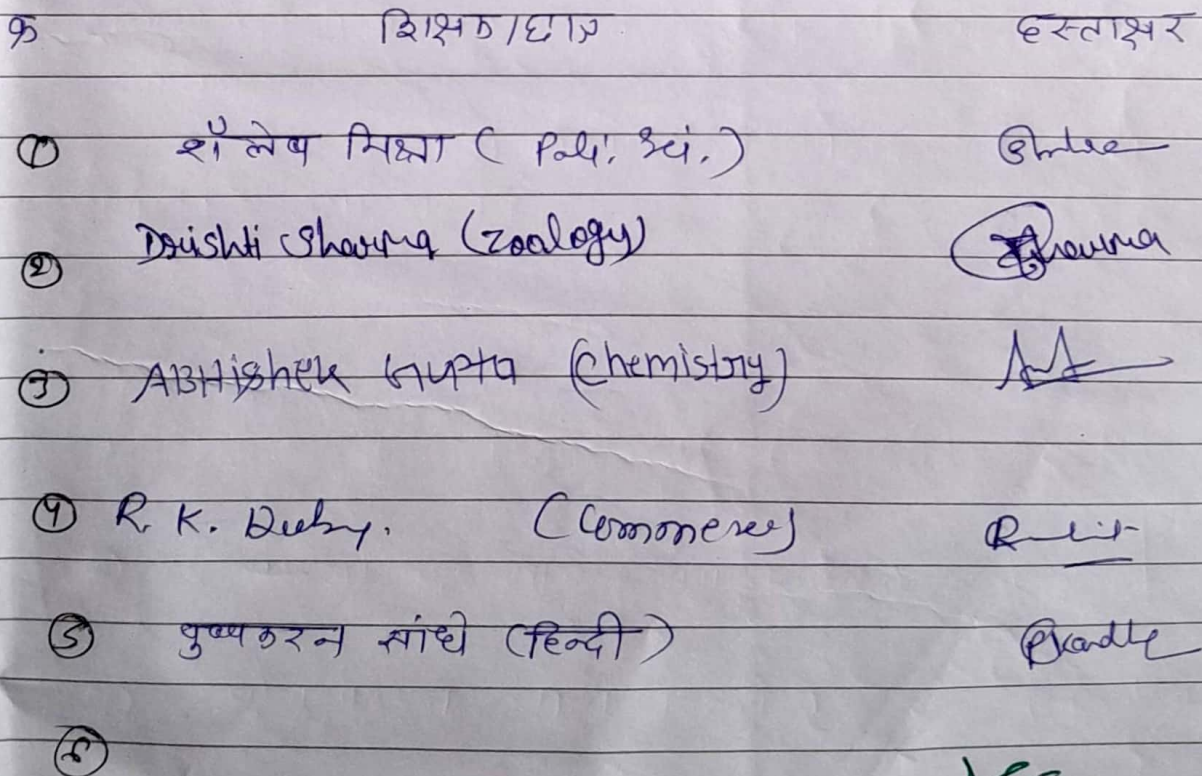 क्र शिक्षक/छात्र हस्ताक्षर
① शैलेष मिश्रा (Poli. Sci.)
② Drishti Sharma (Zoology) Sharma
③ ABHIShek Gupta (Chemistry)
④ R. K. Dubey. (Commerce)
⑤ पुष्पकरन सांधे (हिन्दी)
⑥